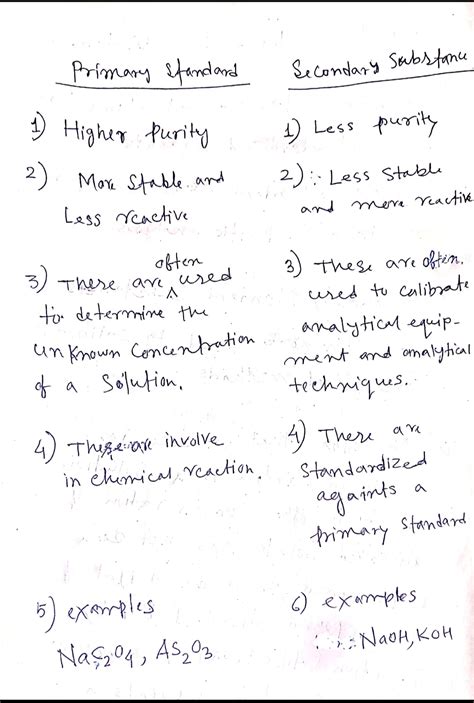 Primary Standard
1) Higher purity
2) More Stable and
Less reactive
3) These are often used
to determine the
unknown concentration
of a Solution.
4) These are involve
in chemical reaction.
5) examples
NaC2O4, AS2O3
Secondary Substance
1) Less purity
2) Less Stable
and more reactive
3) These are often.
used to calibrate
analytical equip-
ment and analytical
techniques.
4) There are
Standardized
againts a
primary Standard
6) examples
NaOH, KOH